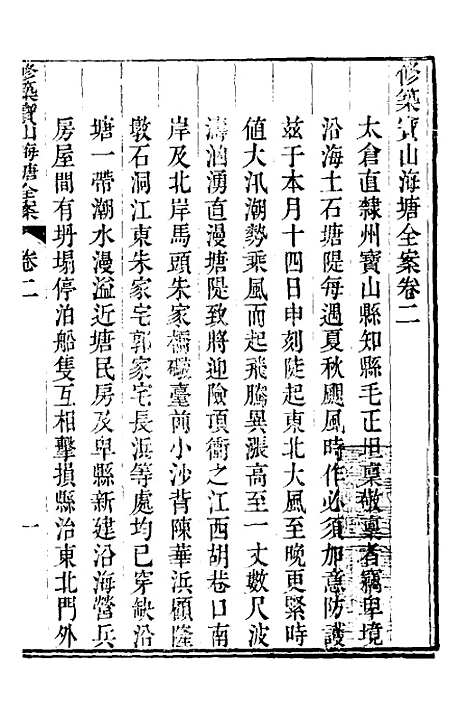 修築寶山海塘全案卷二
太倉直隸州寶山縣知縣毛正坦稟敬稟者竊卑境
沿海土石塘隄每遇夏秋颶風時作必須加意防護
茲于本月十四日申刻陡起東北大風至晚更緊時
值大汛潮勢乘風而起飛騰異漲高至一丈數尺波
濤洶湧直漫塘隄致將迎險頂衝之江西胡巷口南
岸及北岸馬頭朱家橋礮臺前小沙背陳華浜顧隆
墩石洞江東朱家宅郭家宅長浜等處均已穿缺沿
塘一帶潮水漫溢近塘民房及卑縣新建沿海營兵
房屋間有坍塌停泊船隻互相擊損縣治東北門外
修築寶山海塘全案
卷二
一